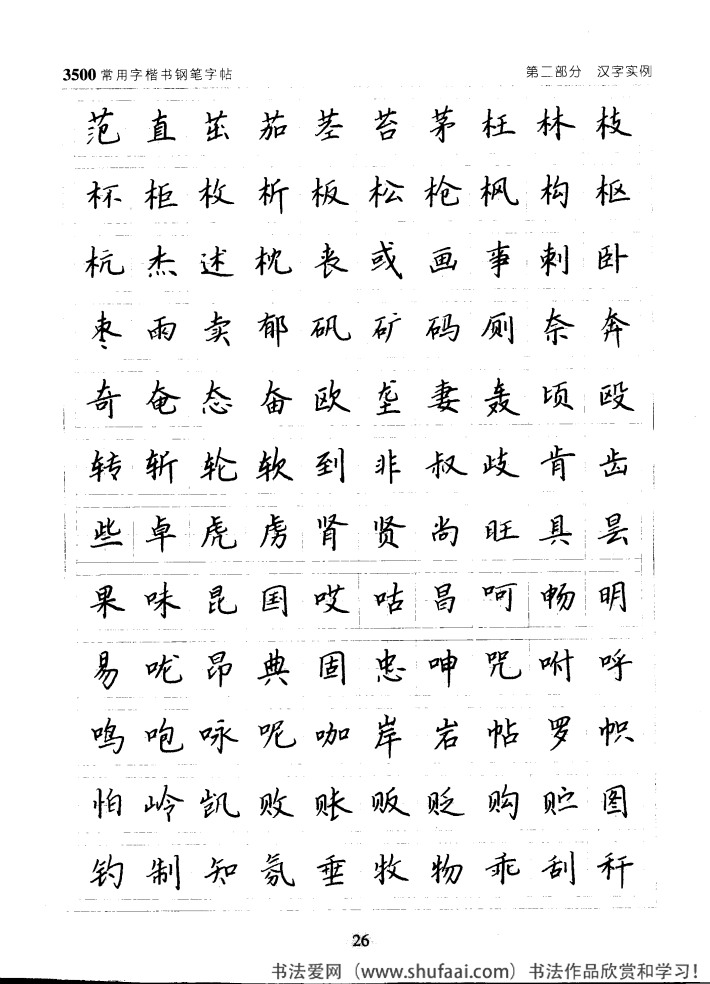 3500常用字楷书钢笔字帖 第二部分 汉字实例
范直茁茄茎苔茅枉林枝
杯柜枚析板松枪枫构枢
杭杰述枕丧或画事刺卧
枣雨卖郁矾矿码厕奈奔
奇奄态奋欧垄妻轰顷殴
转斩轮软到非叔歧肯齿
些卓虎虏肾贤尚旺具昙
果味昆国哎咕昌呵畅明
易咙昂典固忠呻咒咐呼
鸣咆咏呢咖岸岩帖罗帜
怕岭凯败账贩贬购贮图
钓制知氛垂牧物乖刮秆
26
书法爱网（www.shufaai.com）书法作品欣赏和学习！